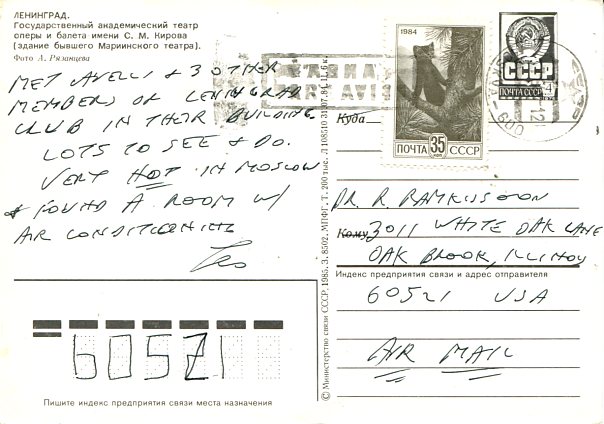 ЛЕНИНГРАД.
Государственный академический театр
оперы и балета имени С. М. Кирова
(здание бывшего Мариинского театра).
Фото А. Рязанцева
MET AVELLI & 3 OTHER
MEMBERS OF LENINGRAD
CLUB IN THEIR BUILDING
LOTS TO SEE & DO.
VERY HOT IN MOSCOW
& FOUND A ROOM W/
AIR CONDITIONING
Leo
60521
Пишите индекс предприятия связи места назначения
© Министерство связи СССР. 1985. З. 8502. МПФГ. Т. 200 тыс. Л 108510 31.07.84. Ц. 6 к.
PAR AVION
1984
ПОЧТА СССР 35 коп
СССР
ПОЧТА СССР 4
Куда
DR. R. RAMKISSOON
Кому 3011 WHITE OAK LANE
OAK BROOK, ILLINOIS
Индекс предприятия связи и адрес отправителя
60521 USA
AIR MAIL